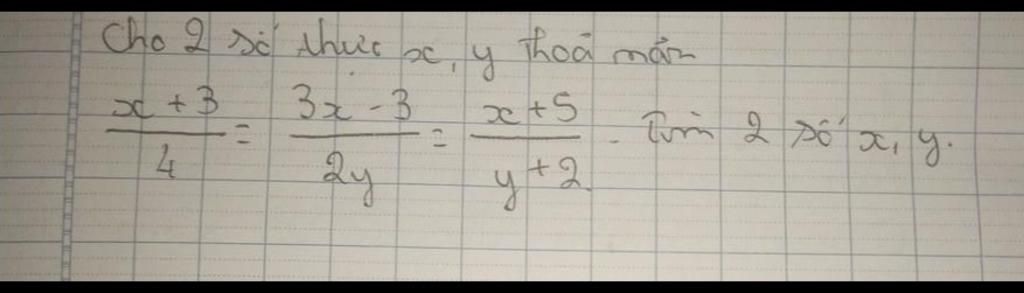 Cho 2 số thực x, y thoả mãn
x + 3 / 4 = 3x - 3 / 2y = x + 5 / y + 2 . Tìm 2 số x, y.